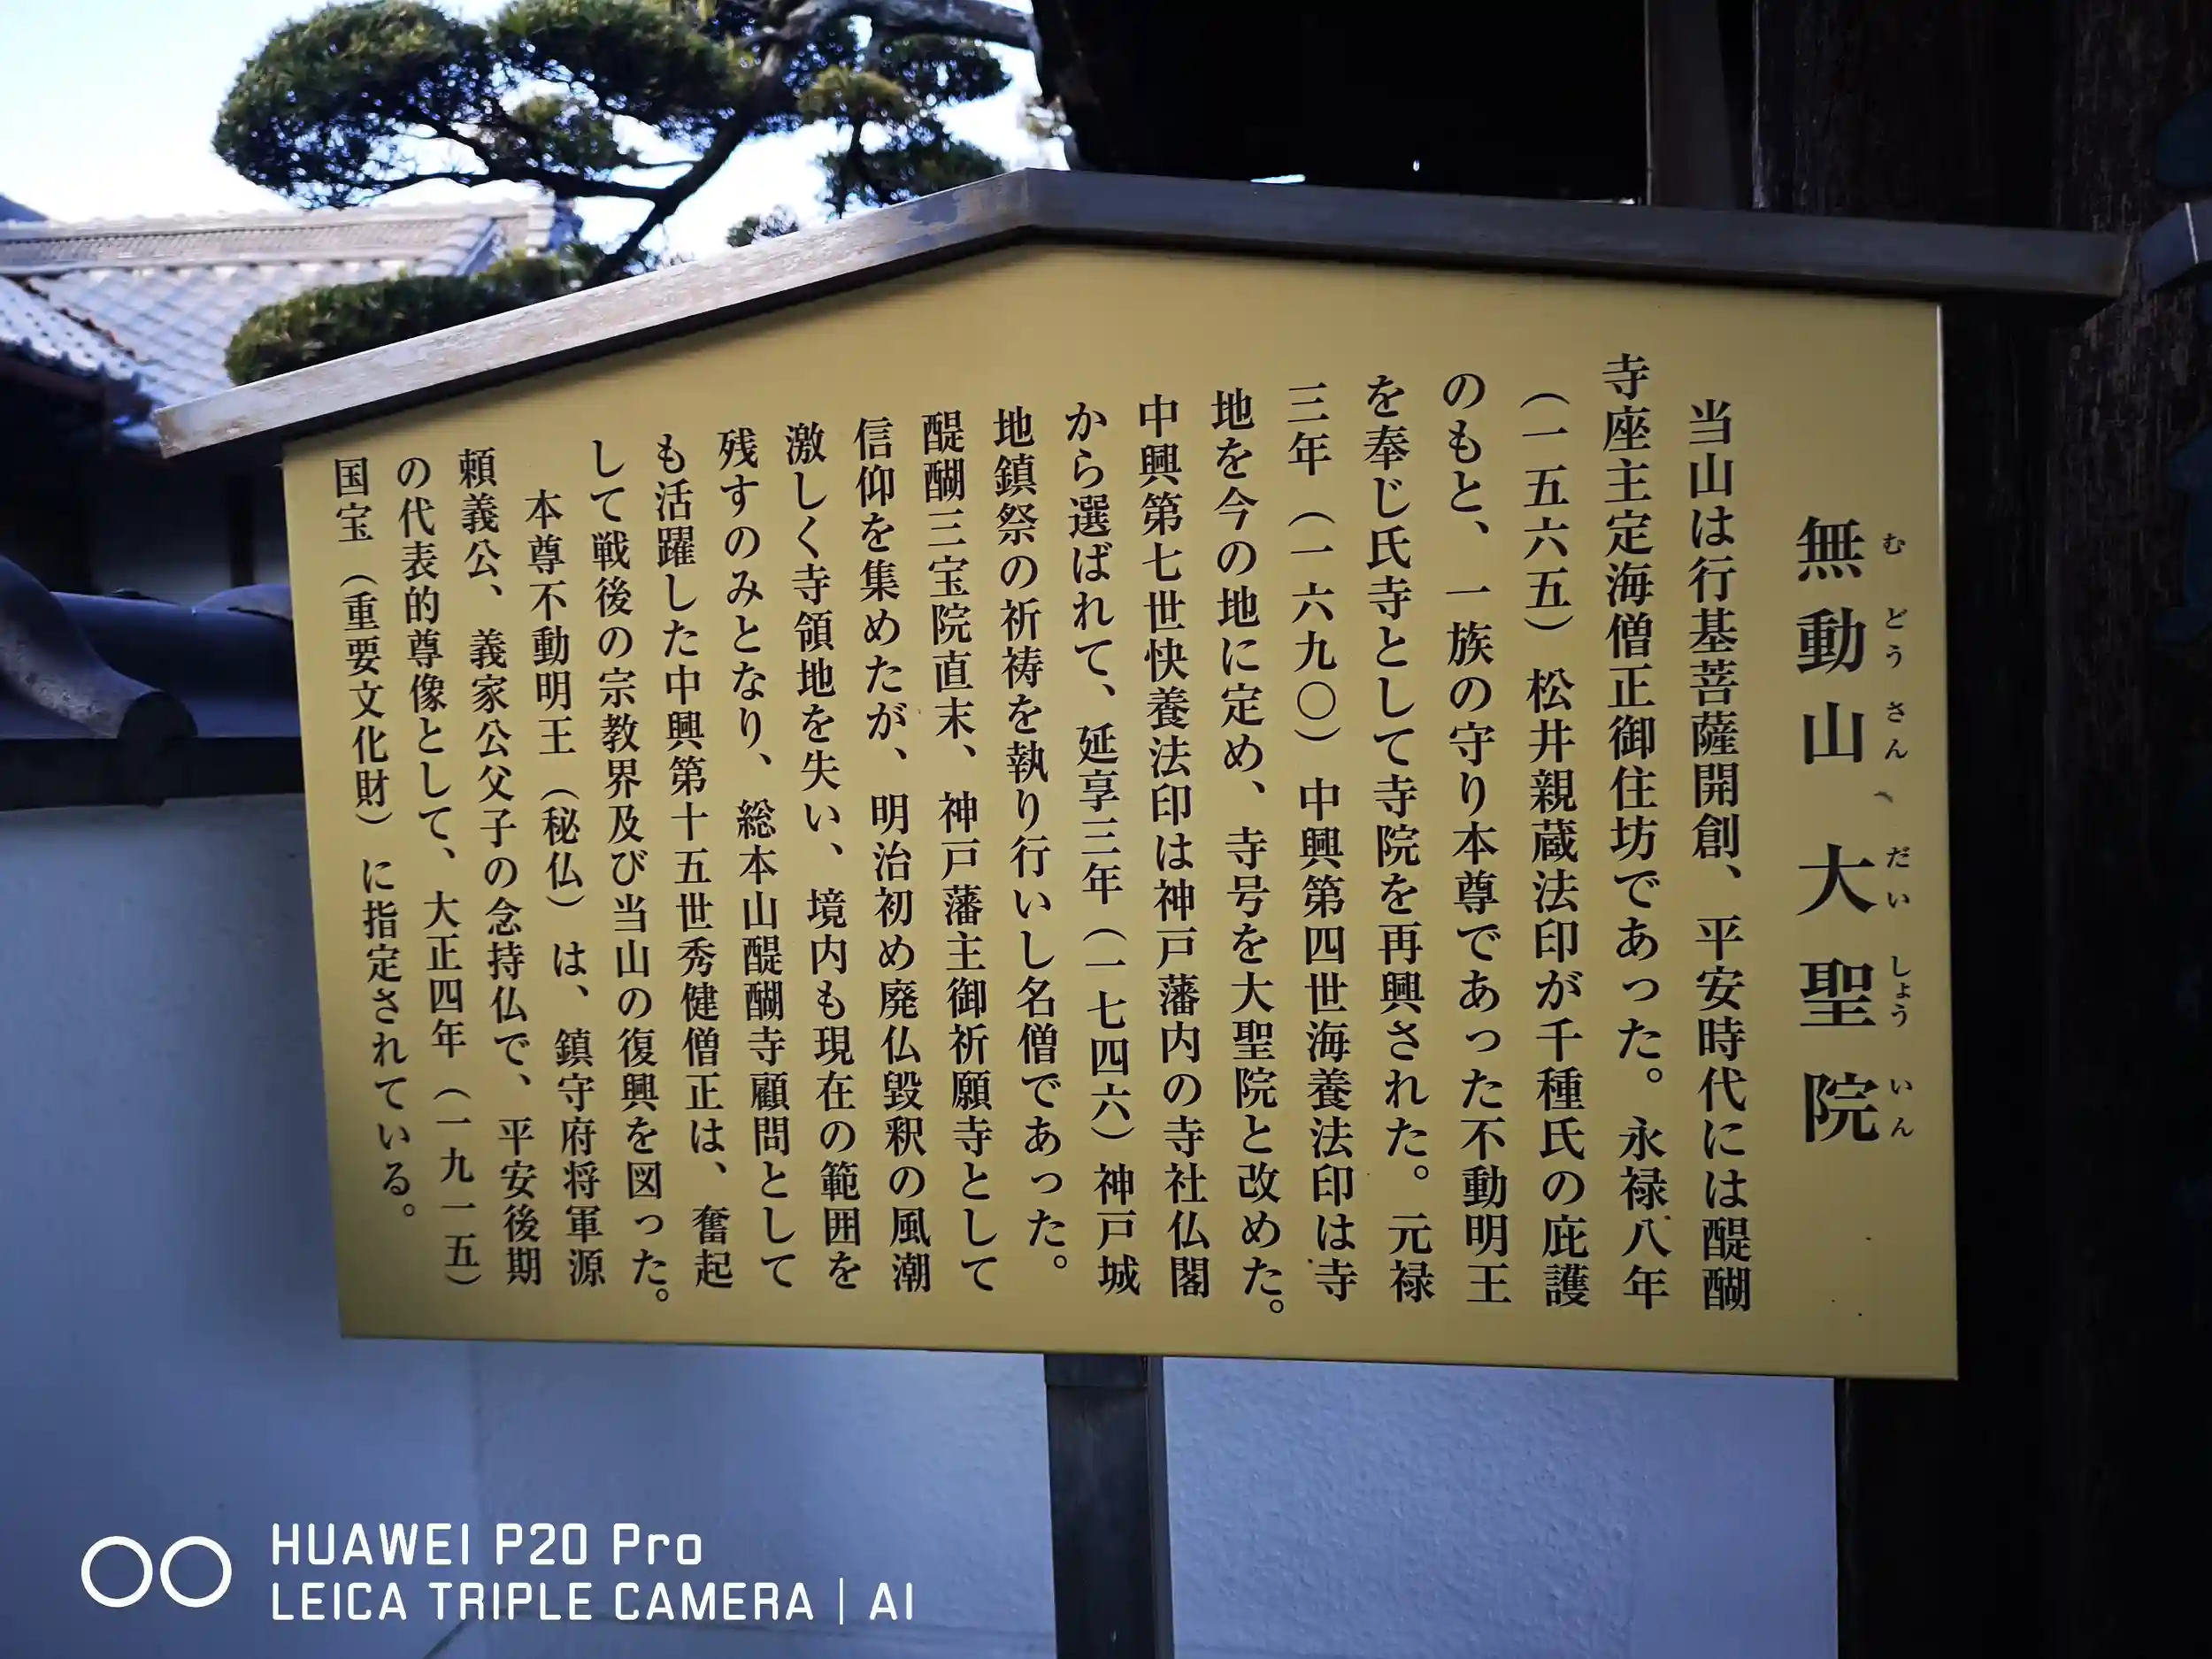 無動山 大聖院
むどうさん だいしょういん
当山は行基菩薩開創、平安時代には醍醐
寺座主定海僧正御住坊であった。永禄八年
（一五六五）松井親蔵法印が千種氏の庇護
のもと、一族の守り本尊であった不動明王
を奉じ氏寺として寺院を再興された。元禄
三年（一六九〇）中興第四世海養法印は寺
地を今の地に定め、寺号を大聖院と改めた。
中興第七世快養法印は神戸藩内の寺社仏閣
から選ばれて、延享三年（一七四六）神戸城
地鎮祭の祈祷を執り行いし名僧であった。
醍醐三宝院直末、神戸藩主御祈願寺として
信仰を集めたが、明治初め廃仏毀釈の風潮
激しく寺領地を失い、境内も現在の範囲を
残すのみとなり、総本山醍醐寺顧問として
も活躍した中興第十五世秀健僧正は、奮起
して戦後の宗教界及び当山の復興を図った。
本尊不動明王（秘仏）は、鎮守府将軍源
頼義公、義家公父子の念持仏で、平安後期
の代表的尊像として、大正四年（一九一五）
国宝（重要文化財）に指定されている。
HUAWEI P20 Pro
LEICA TRIPLE CAMERA | AI